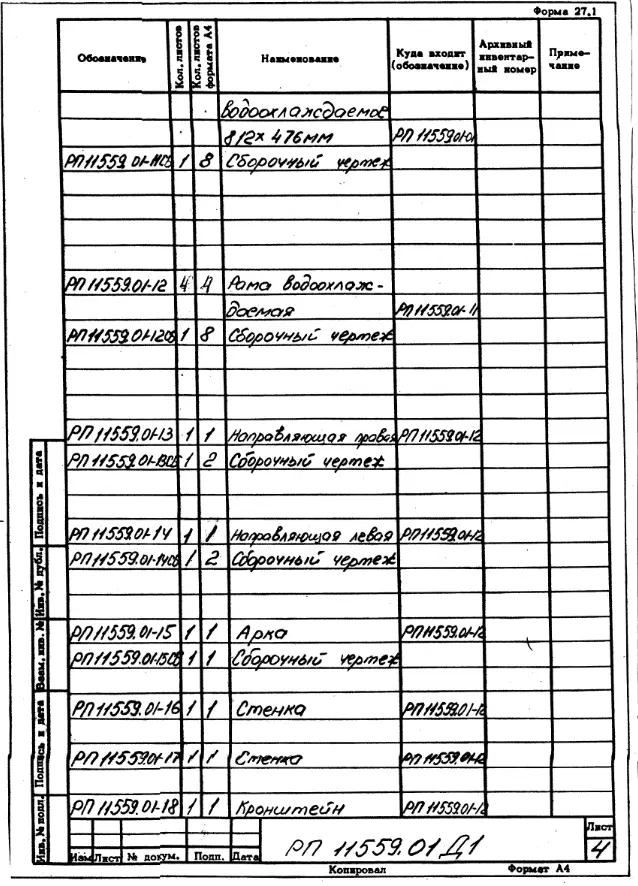 Форма 27.1
Обозначение Кол. листов Кол. листов формата А4 Наименование Куда входит (обозначение) Архивный инвентарный номер Примечание
водоохлаждаемое
812х 476мм РП 11559.01-01
РП11559.01-11СБ 1 8 Сборочный чертеж
РП 11559.01-12 4 4 Рама водоохлаж-
даемая РП 11559.01-11
РП11559.01-12СБ 1 8 Сборочный чертеж
РП 11559.01-13 1 1 Направляющая правая РП11559.01-12
РП 11559.01-13СБ 1 2 Сборочный чертеж
РП 11559.01-14 1 1 Направляющая левая РП11559.01-12
РП 11559.01-14СБ 1 2 Сборочный чертеж
РП11559.01-15 1 1 Арка РП11559.01-12
РП11559.01-15СБ 1 1 Сборочный чертеж
РП11559.01-16 1 1 Стенка РП11559.01-12
РП 11559.01-17 1 1 Стенка РП 11559.01-12
РП 11559.01-18 1 1 Кронштейн РП 11559.01-12
Инв. № подл. Подпись и дата Взам. инв. № Инв. № дубл. Подпись и дата
Изм Лист № докум. Подп. Дата
РП 11559.01 Д1
Лист
4
Копировал Формат А4